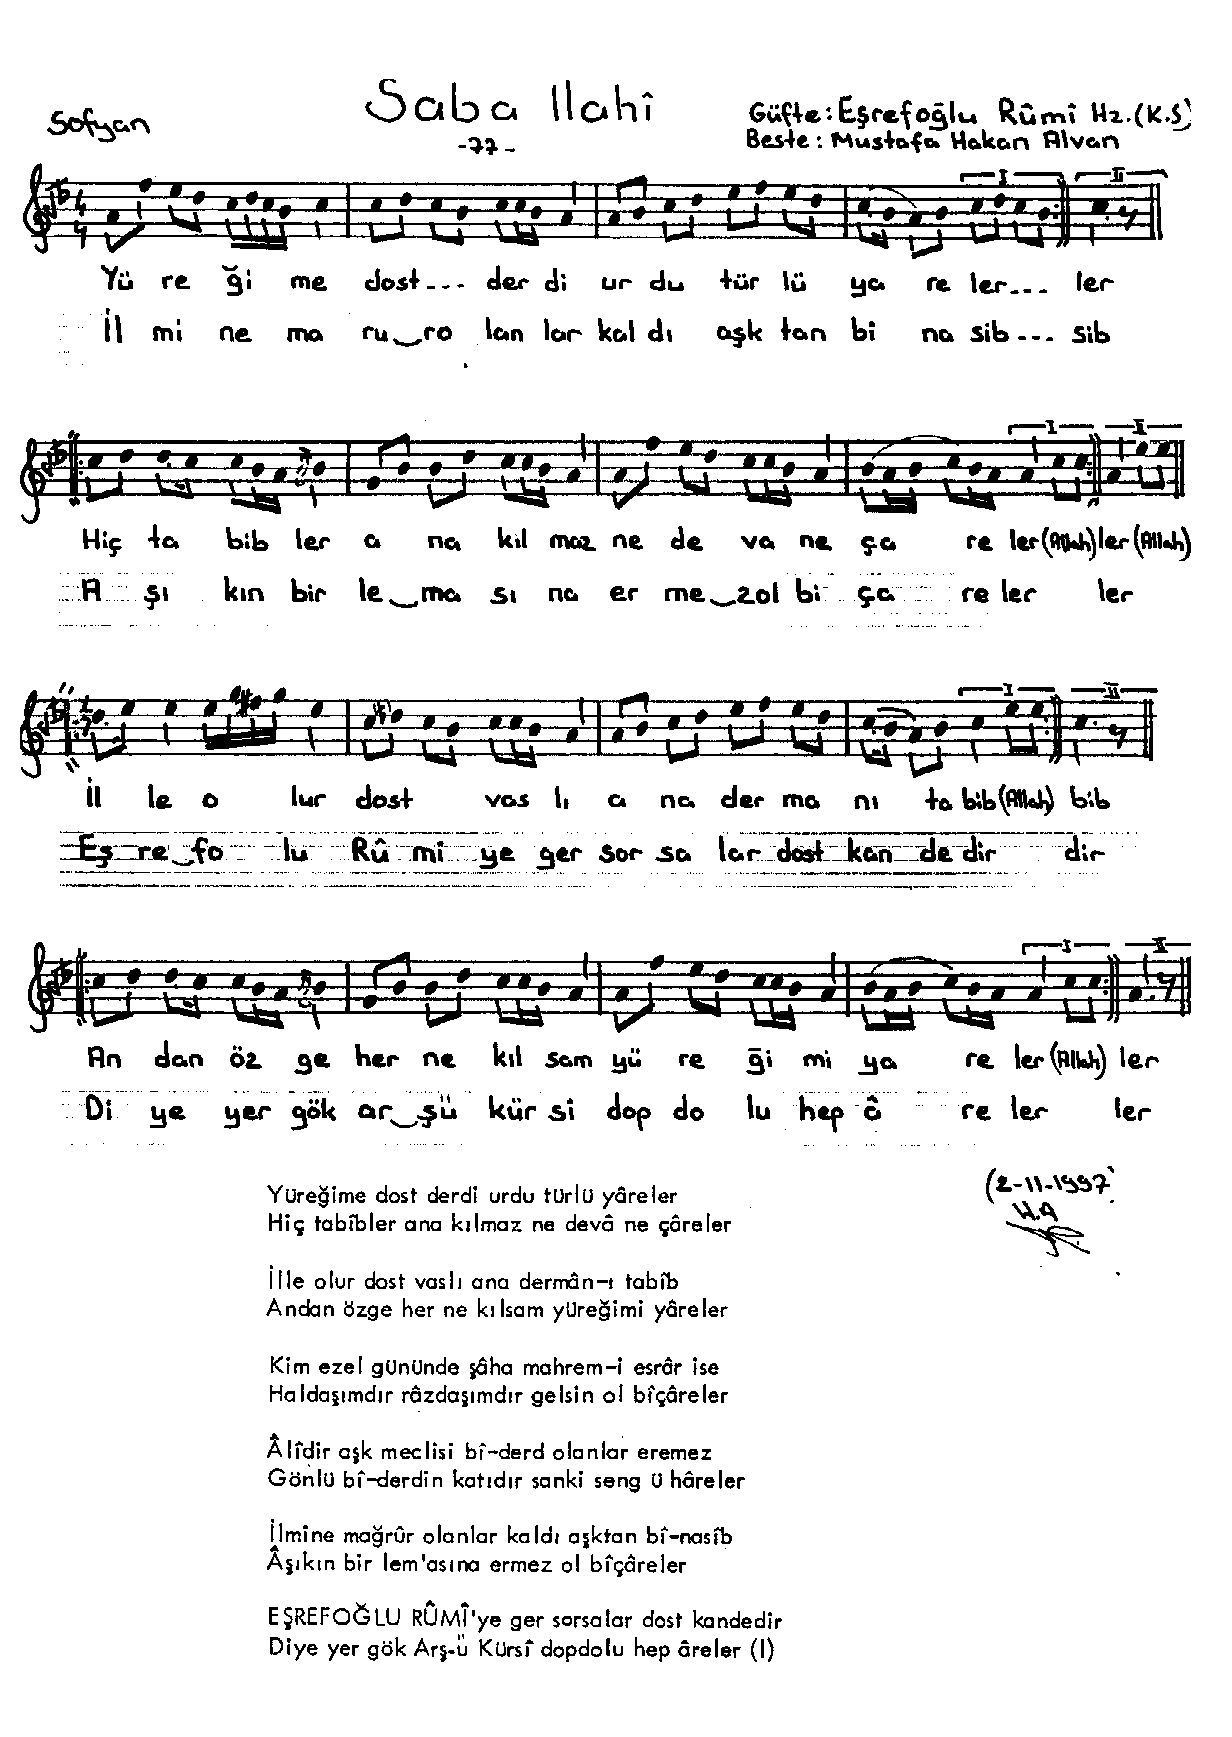 Saba Ilahî
Sofyan
-77-
Güfte: Eşrefoğlu Rûmî Hz. (K.S)
Beste: Mustafa Hakan Alvan
I II
Yü re ği me dost--- der di ur du tür lü ya re ler--- ler
İl mi ne ma ru_ro lan lar kal dı aşk tan bi na sib--- sib
I II
Hiç ta bib ler a na kıl maz ne de va ne ça re ler (Allah) ler (Allah)
A şı kın bir le_ma sı na er me_zol bi ça re ler ler
I II
İl le o lur dost vas lı a na der ma nı ta bib (Allah) bib
Eş re_fo lu Rû mi ye ger sor sa lar dost kan de dir dir
I II
An dan öz ge her ne kıl sam yü re ği mi ya re ler (Allah) ler
Di ye yer gök ar_şü kür si dop do lu hep â re ler ler
(2-11-1997)
H.A
Yüreğime dost derdi urdu türlü yâreler
Hiç tabîbler ana kılmaz ne devâ ne çâreler
İlle olur dost vaslı ana dermân-ı tabîb
Andan özge her ne kılsam yüreğimi yâreler
Kim ezel gününde şâha mahrem-i esrâr ise
Haldaşımdır râzdaşımdır gelsin ol bîçâreler
Âlîdir aşk meclisi bî-derd olanlar eremez
Gönlü bî-derdin katıdır sanki seng ü hâreler
İlmine mağrûr olanlar kaldı aşktan bî-nasîb
Âşıkın bir lem'asına ermez ol bîçâreler
EŞREFOĞLU RÛMÎ'ye ger sorsalar dost kandedir
Diye yer gök Arş-ü Kürsî dopdolu hep âreler (I)